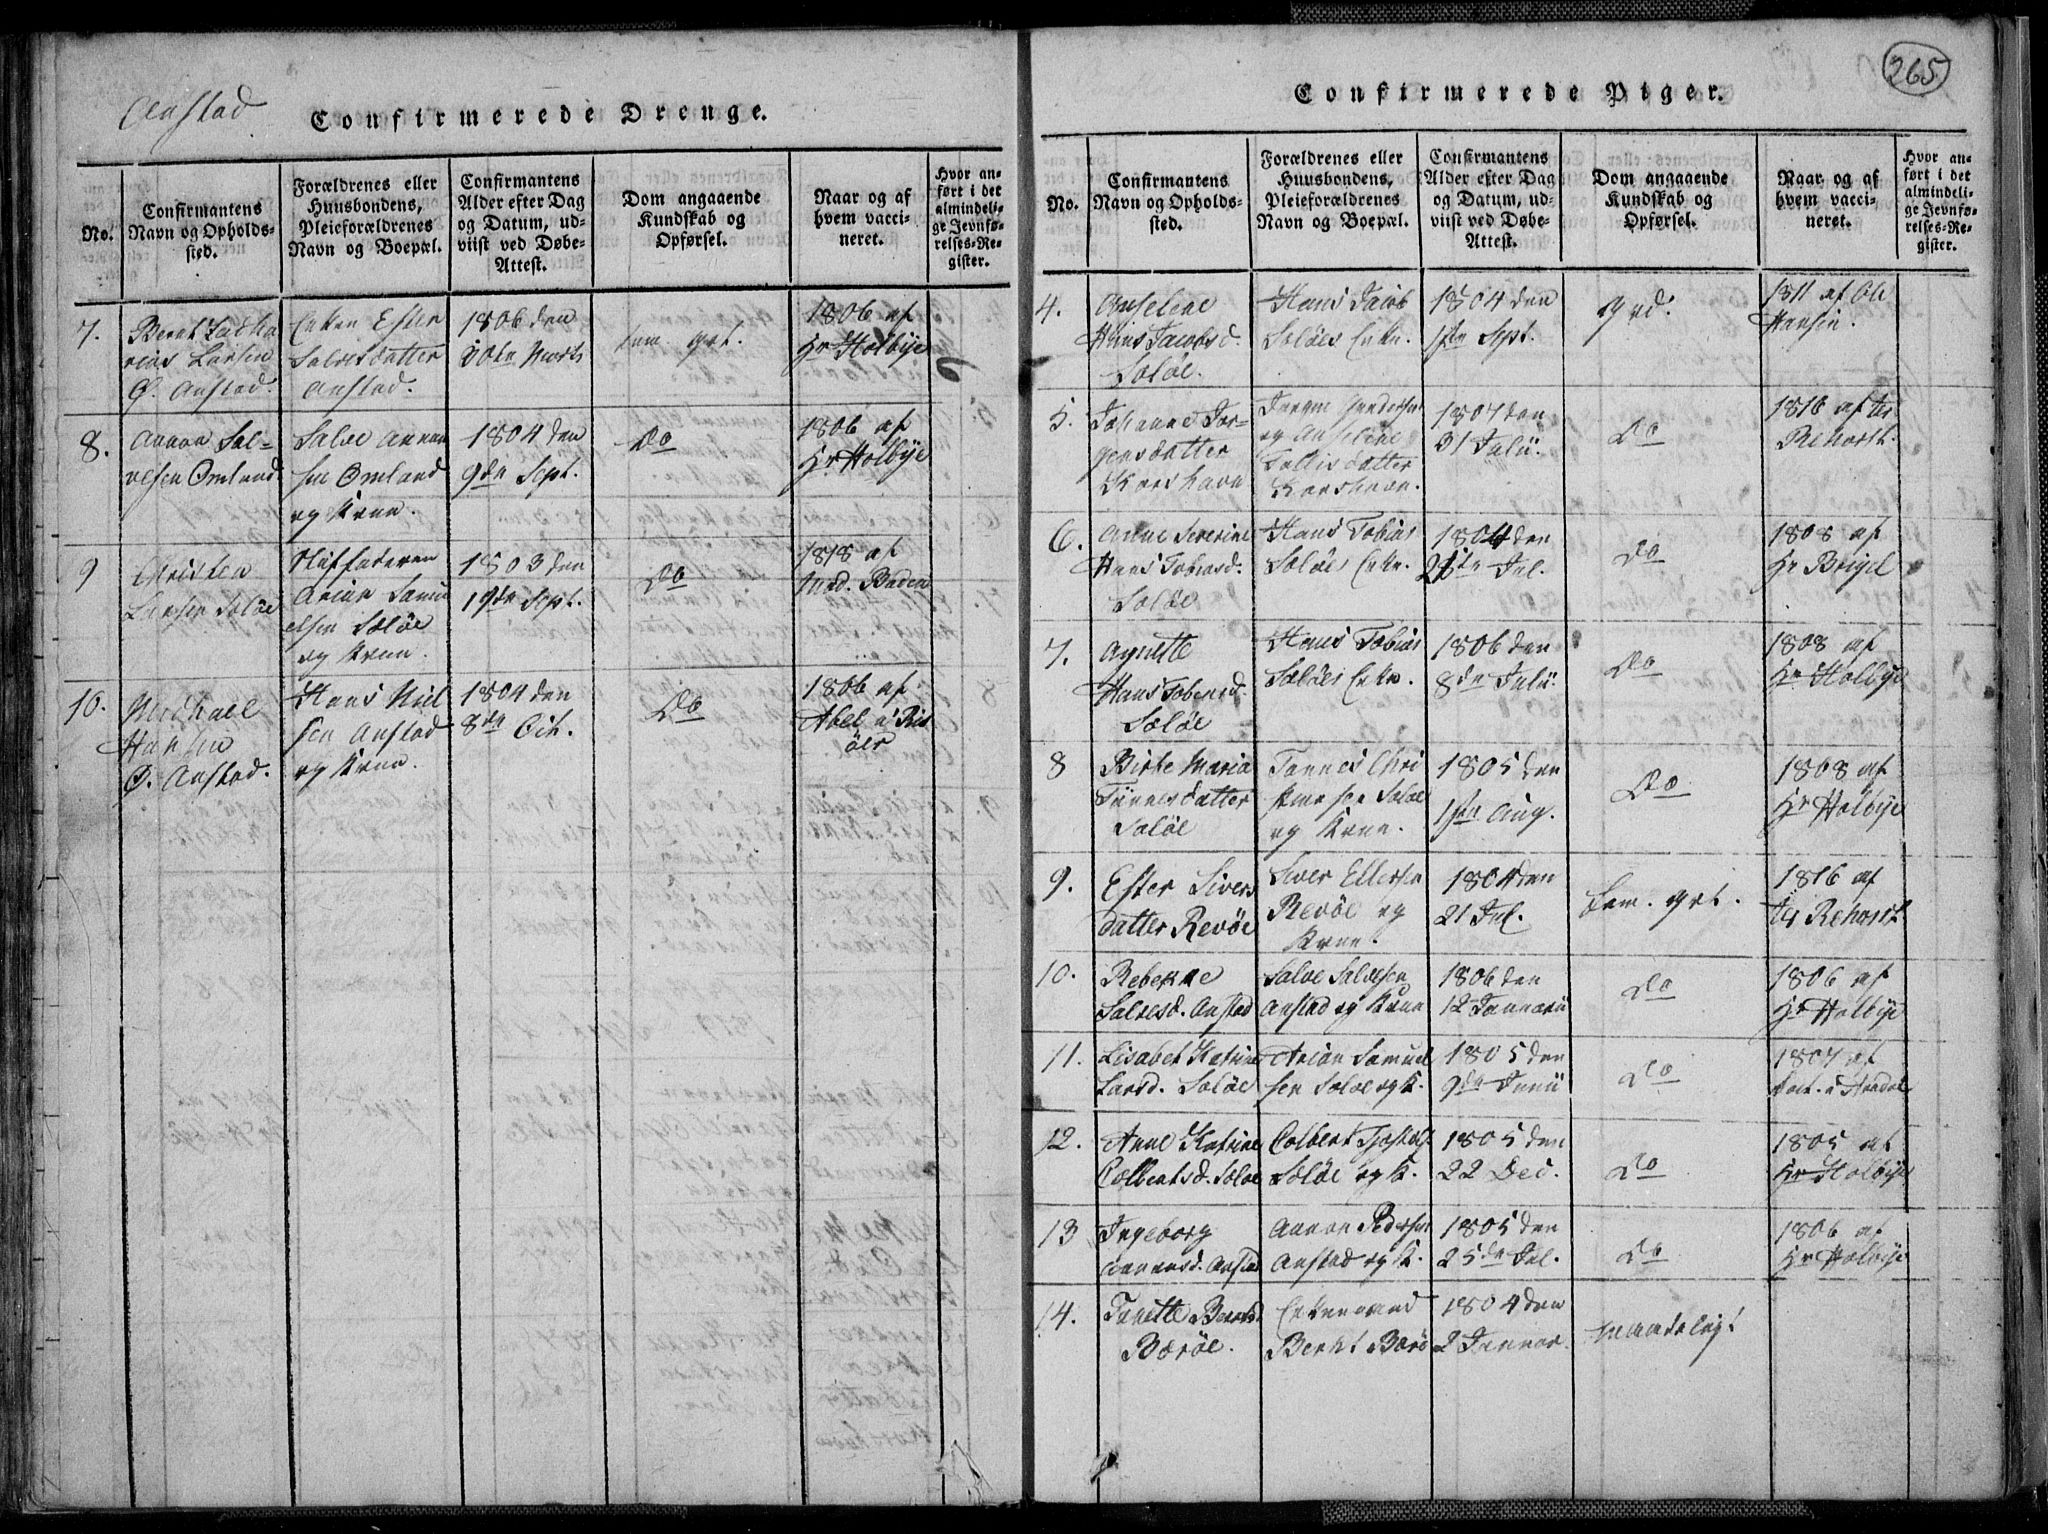 265
Anstad
Confirmerede Drenge.
No.
Confirmantens
Navn og Opholds-
sted.
Forældrenes eller
Huusbondens,
Pleieforældrenes
Navn og Boepæl.
Confirmantens
Alder efter Dag
og Datum, ud-
viist ved Døbe-
Attest.
Dom angaaende
Kundskab og
Opførsel.
Naar og af
hvem vacci-
neret.
Hvor an-
ført i det
almindeli-
ge Jevnfø-
relses-Re-
gister.
7.
Larsen
Anstad.
Enken Ester
Salvesdatter
Anstad.
1806 den
Marts
tem. grt.
1806 af
Hr Holbye
8.
Annon Sal-
vesen Omland
Salve Annon
sen Omland
og Kone.
1804 den
9de Sept.
Do
1806 af
Hr Holbye
9
Christen
Larsen Saløe
Stiffaderen
Arian Samu
elsen Sæløe
og Kone.
1803 den
19de Sept.
Do
1818 af
Mad. Boden
10.
Michael
Hansen
Ø. Anstad.
Hans Niel
sen Anstad
og Kone.
1804 den
8de Oct.
Do
1806 af
Abel i Ris
öer
Confirmerede Piger.
No.
Confirmantens
Navn og Opholds-
sted.
Forældrenes eller
Huusbondens,
Pleieforældrenes
Navn og Boepæl.
Confirmantens
Alder efter Dag
og Datum, ud-
viist ved Døbe-
Attest.
Dom angaaende
Kundskab og
Opførsel.
Naar og af
hvem vacci-
neret.
Hvor an-
ført i det
almindeli-
ge Jevnfø-
relses-Re-
gister.
4.
Anselene
Hans Jacobsd.
Soløe.
Hans Jacob
Soløes Enke.
1804 den
1ste Sept.
god.
1811 af Ole
Hansen.
5.
Johanne Jør-
gensdatter
Korshavn
Jørgen Gundersen
og Anselene
datter
Korshavn.
1804 den
31 Julii
Do
1816 af
Rehorst.
6.
Anne Severine
Hans Tobiasd.
Soløe
Hans Tobias
Soløes Enke.
1804 den
Jul.
Do
1808 af
Hr
7.
Agnette
Hans Tobiasd.
Sæløe
Hans Tobias
Sæløes Enke.
1806 den
8de Julii
Do
1808 af
Hr Holbye
8
Birte Maria
Tønnesdatter
Saløe
Tønnes Chri
sen Saløe
og Kone.
1805 den
1ste Aug.
Do
1808 af
Hr Holbye
9.
Ester Sivers
datter Revøe
Siver Ellefsen
Revøe og
Kone.
1804 den
21 Jul.
tem. grt.
1816 af
Rehorst
10.
Rebekke
Salvesd. Anstad
Salve Salvesen
Anstad og Kone
1806 den
12 Januarii
Do
1806 af
Hr Holbye
11.
Lisabet Katrine
Larsd. Soløe
Arian Samuel
sen Soløe og K.
1805 den
9de Junii
Do
1807 af
i Arendal
12.
Anne Katrine
Colbentsd. Sæløe
Colbent
Sæløe og K.
1805 den
22 Dec.
Do
1805 af
Hr Holbye
13
Ingeborg
Annonsd. Anstad
Annon Pedersen
Anstad og K.
1805 den
25de Jul.
Do
1806 af
Hr Holbye
14.
Tonette Berntsd.
Bærøe.
Enkemand
Bernt Bærø
1804 den
2 Januar.
maadeligt